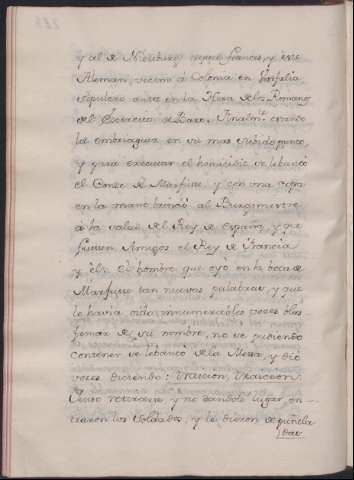 y al de Nieuburg aquel frances, y este
Aleman, vecino á Colonia en
antes en la Hera de los Romanos
del Exercicio de Finalm.te estando
la embriaguez en su mas subido punto,
y para executar el homicidio se lebantó
el Conde de Marfurt, y con una copa
en la mano brindó al Burgimestre
á la salud del Rey de España, y que
fuesen Amigos el Rey de Francia
y él: el hombre que oyó en la boca de
Marfurt tan nuevas palabras, y que
le havia oido innumerables veces blas
femar de su nombre, no se pudiendo
contener se lebantó de la Mesa, y dió
voces diciendo: traicion, traicion.
Quiso retirarse, y no dandole lugar, en-
traron los Soldados, y le dieron de puñala
das